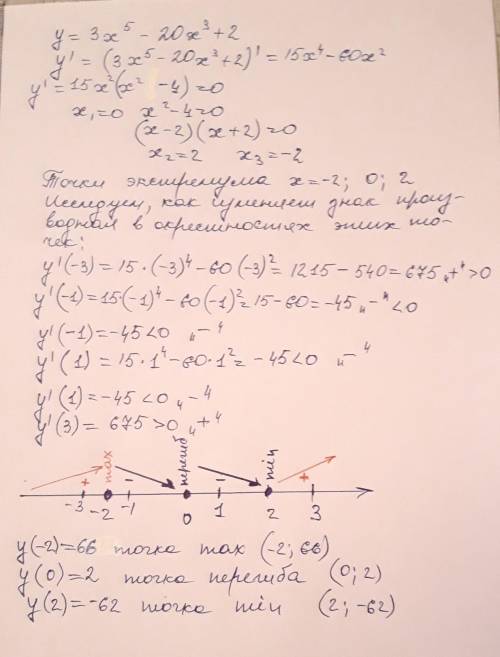 y = 3x⁵ - 20x³ + 2
y' = (3x⁵ - 20x³ + 2)' = 15x⁴ - 60x²
y' = 15x²(x² - 4) = 0
x₁ = 0 x² - 4 = 0
(x - 2)(x + 2) = 0
x₂ = 2 x₃ = -2
Точки экстремума x = -2; 0; 2
Исследуем, как изменяет знак произ-
водная в окрестностях этих то-
чек:
y'(-3) = 15·(-3)⁴ - 60(-3)² = 1215 - 540 = 675 „+“ > 0
y'(-1) = 15(-1)⁴ - 60(-1)² = 15 - 60 = -45 „-“ < 0
y'(-1) = -45 < 0 „-“
y'(1) = 15·1⁴ - 60·1² = -45 < 0 „-“
y'(1) = -45 < 0 „-“
y'(3) = 675 > 0 „+“
max перегиб min
+ - - +
-3 -2 -1 0 1 2 3
y(-2) = 66 точка max (-2; 66)
y(0) = 2 точка перегиба (0; 2)
y(2) = -62 точка min (2; -62)